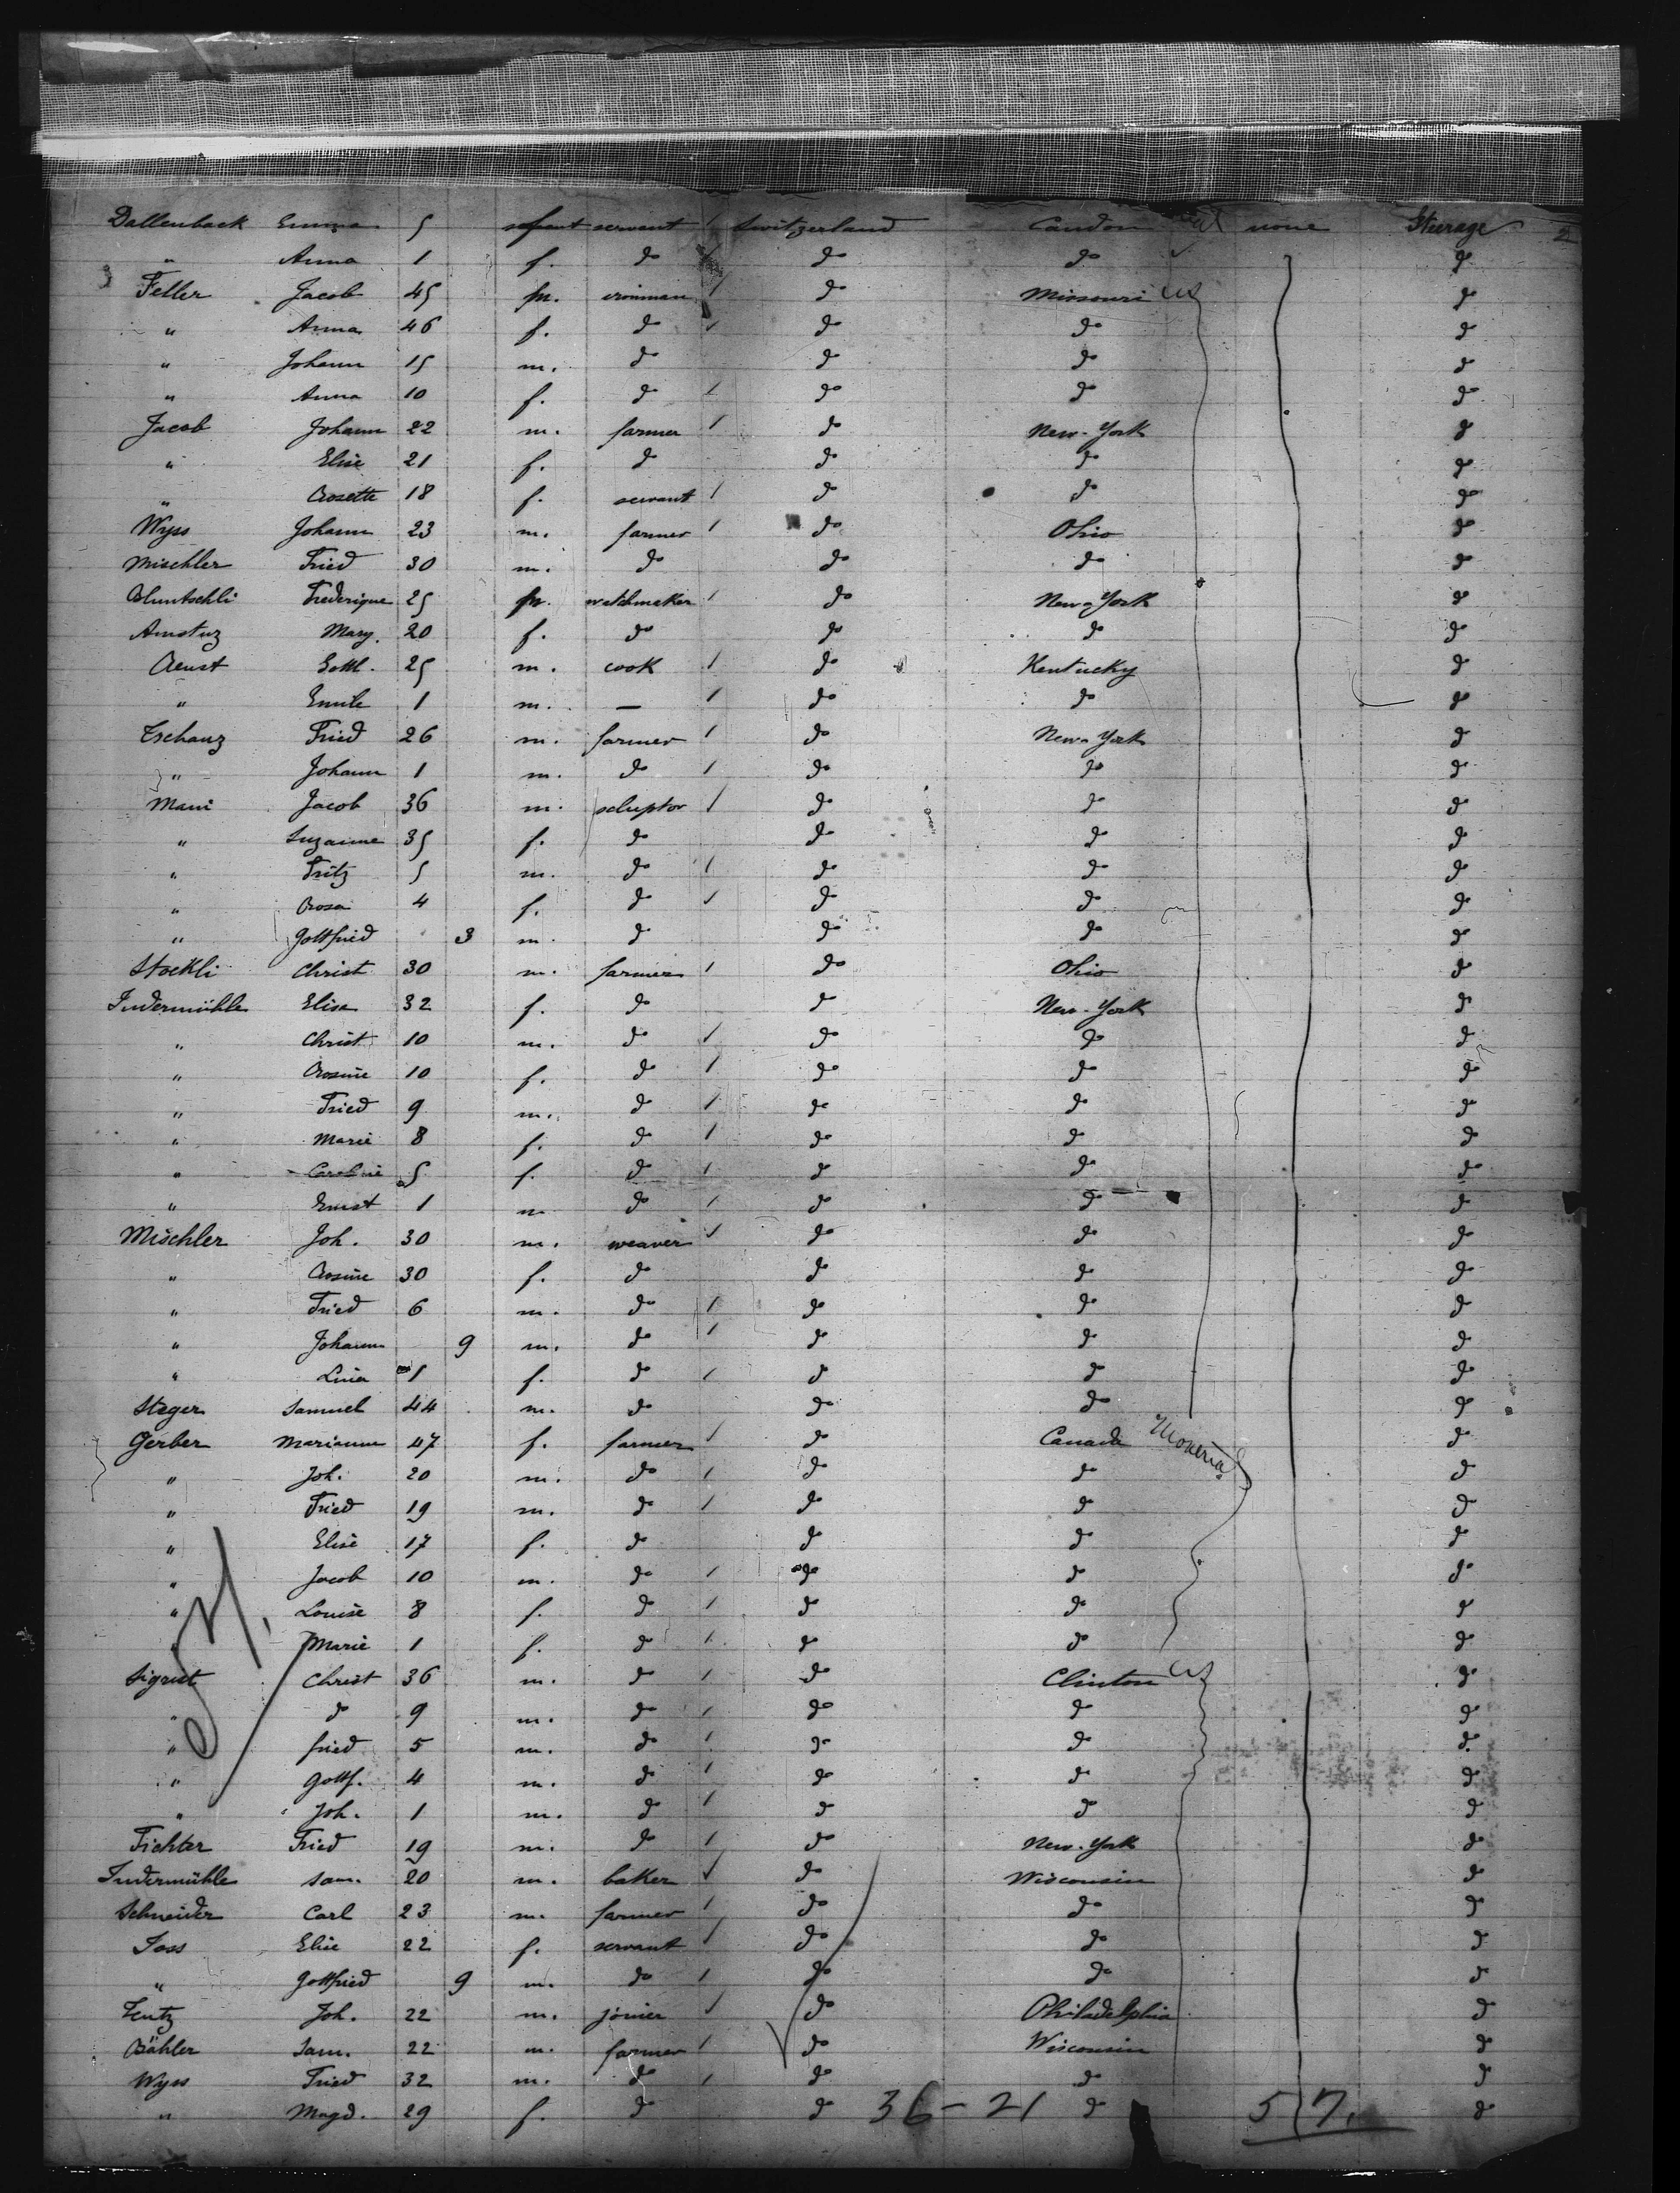 Dallenback Emma 5 servant / Switzerland Camdon none Steerage 2
" Anna 1 f. do do do do
Feller Jacob 45 m. ironman / do Missouri US do
" Anna 46 f. do / do do do
" Johann 15 m. do do do do
" Anna 10 f. do / do do do
Jacob Johann 22 m. farmer / do New-York do
" Elise 21 f. do do do do
" Rosette 18 f. servant / do do do
Wyss Johann 23 m. farmer / do Ohio do
Mischler Fried 30 m. do do do do
Bluntschli Frederique 25 watchmaker / do New-York do
Amstuz Mary. 20 f. do do do do
Aeust Gottl. 25 m. cook / do Kentucky do
" Emile 1 m. — / do do do
Tschanz Fried 26 m. farmer / do New-York do
" Johann 1 m. do / do do do
Mani Jacob 36 m. scluptor / do do do
" Suzanne 35 f. do do do do
" Fritz 5 m. do / do do do
" Rosa 4 f. do / do do do
" Gottfried 3 m. do do do do
Stockli Christ 30 m. farmer / do Ohio do
Indermühle Elise 32 f. do do New-York do
" Christ 10 m. do / do do do
" Rosine 10 f. do / do do do
" Fried 9 m. do / do do do
" Marie 8 f. do / do do do
" Caroline 5 f. do / do do do
" Ernst 1 m do / do do do
Mischler Joh. 30 m. weaver / do do do
" Rosine 30 f. do do do do
" Fried 6 m. do / do do do
" Johann 9 m. do / do do do
" Lina 1 f. do / do do do
Steger Samuel 44 m. do do do do
Gerber Marianne 47 f. farmer / do Canada do
" Joh. 20 m. do / do do do
" Fried 19 m. do / do do do
" Elise 17 f. do do do do
" Jacob 10 m. do / do do do
" Louise 8 f. do / do do do
" Marie 1 f. do / do do do
Sigrist Christ 36 m. do / do Clinton US do
" do 9 m. do / do do do
" fried 5 m. do / do do do
" Gottf. 4 m. do / do do do
" Joh. 1 m. do / do do do
Fichter Fried 19 m. do / do New-York do
Indermühle Sam. 20 m. baker / do Wisconsin do
Schneider Carl 23 m. farmer / do do do
Joss Elise 22 f. servant / do do do
" Gottfried 9 m. do / do do do
Zentz Joh. 22 m. joiner / do Philadelphia do
Bähler Sam. 22 m. farmer / do Wisconsin do
Wyss Fried 32 m. do / do do do
" Magd. 29 f. do do 36 - 21 do 57. do